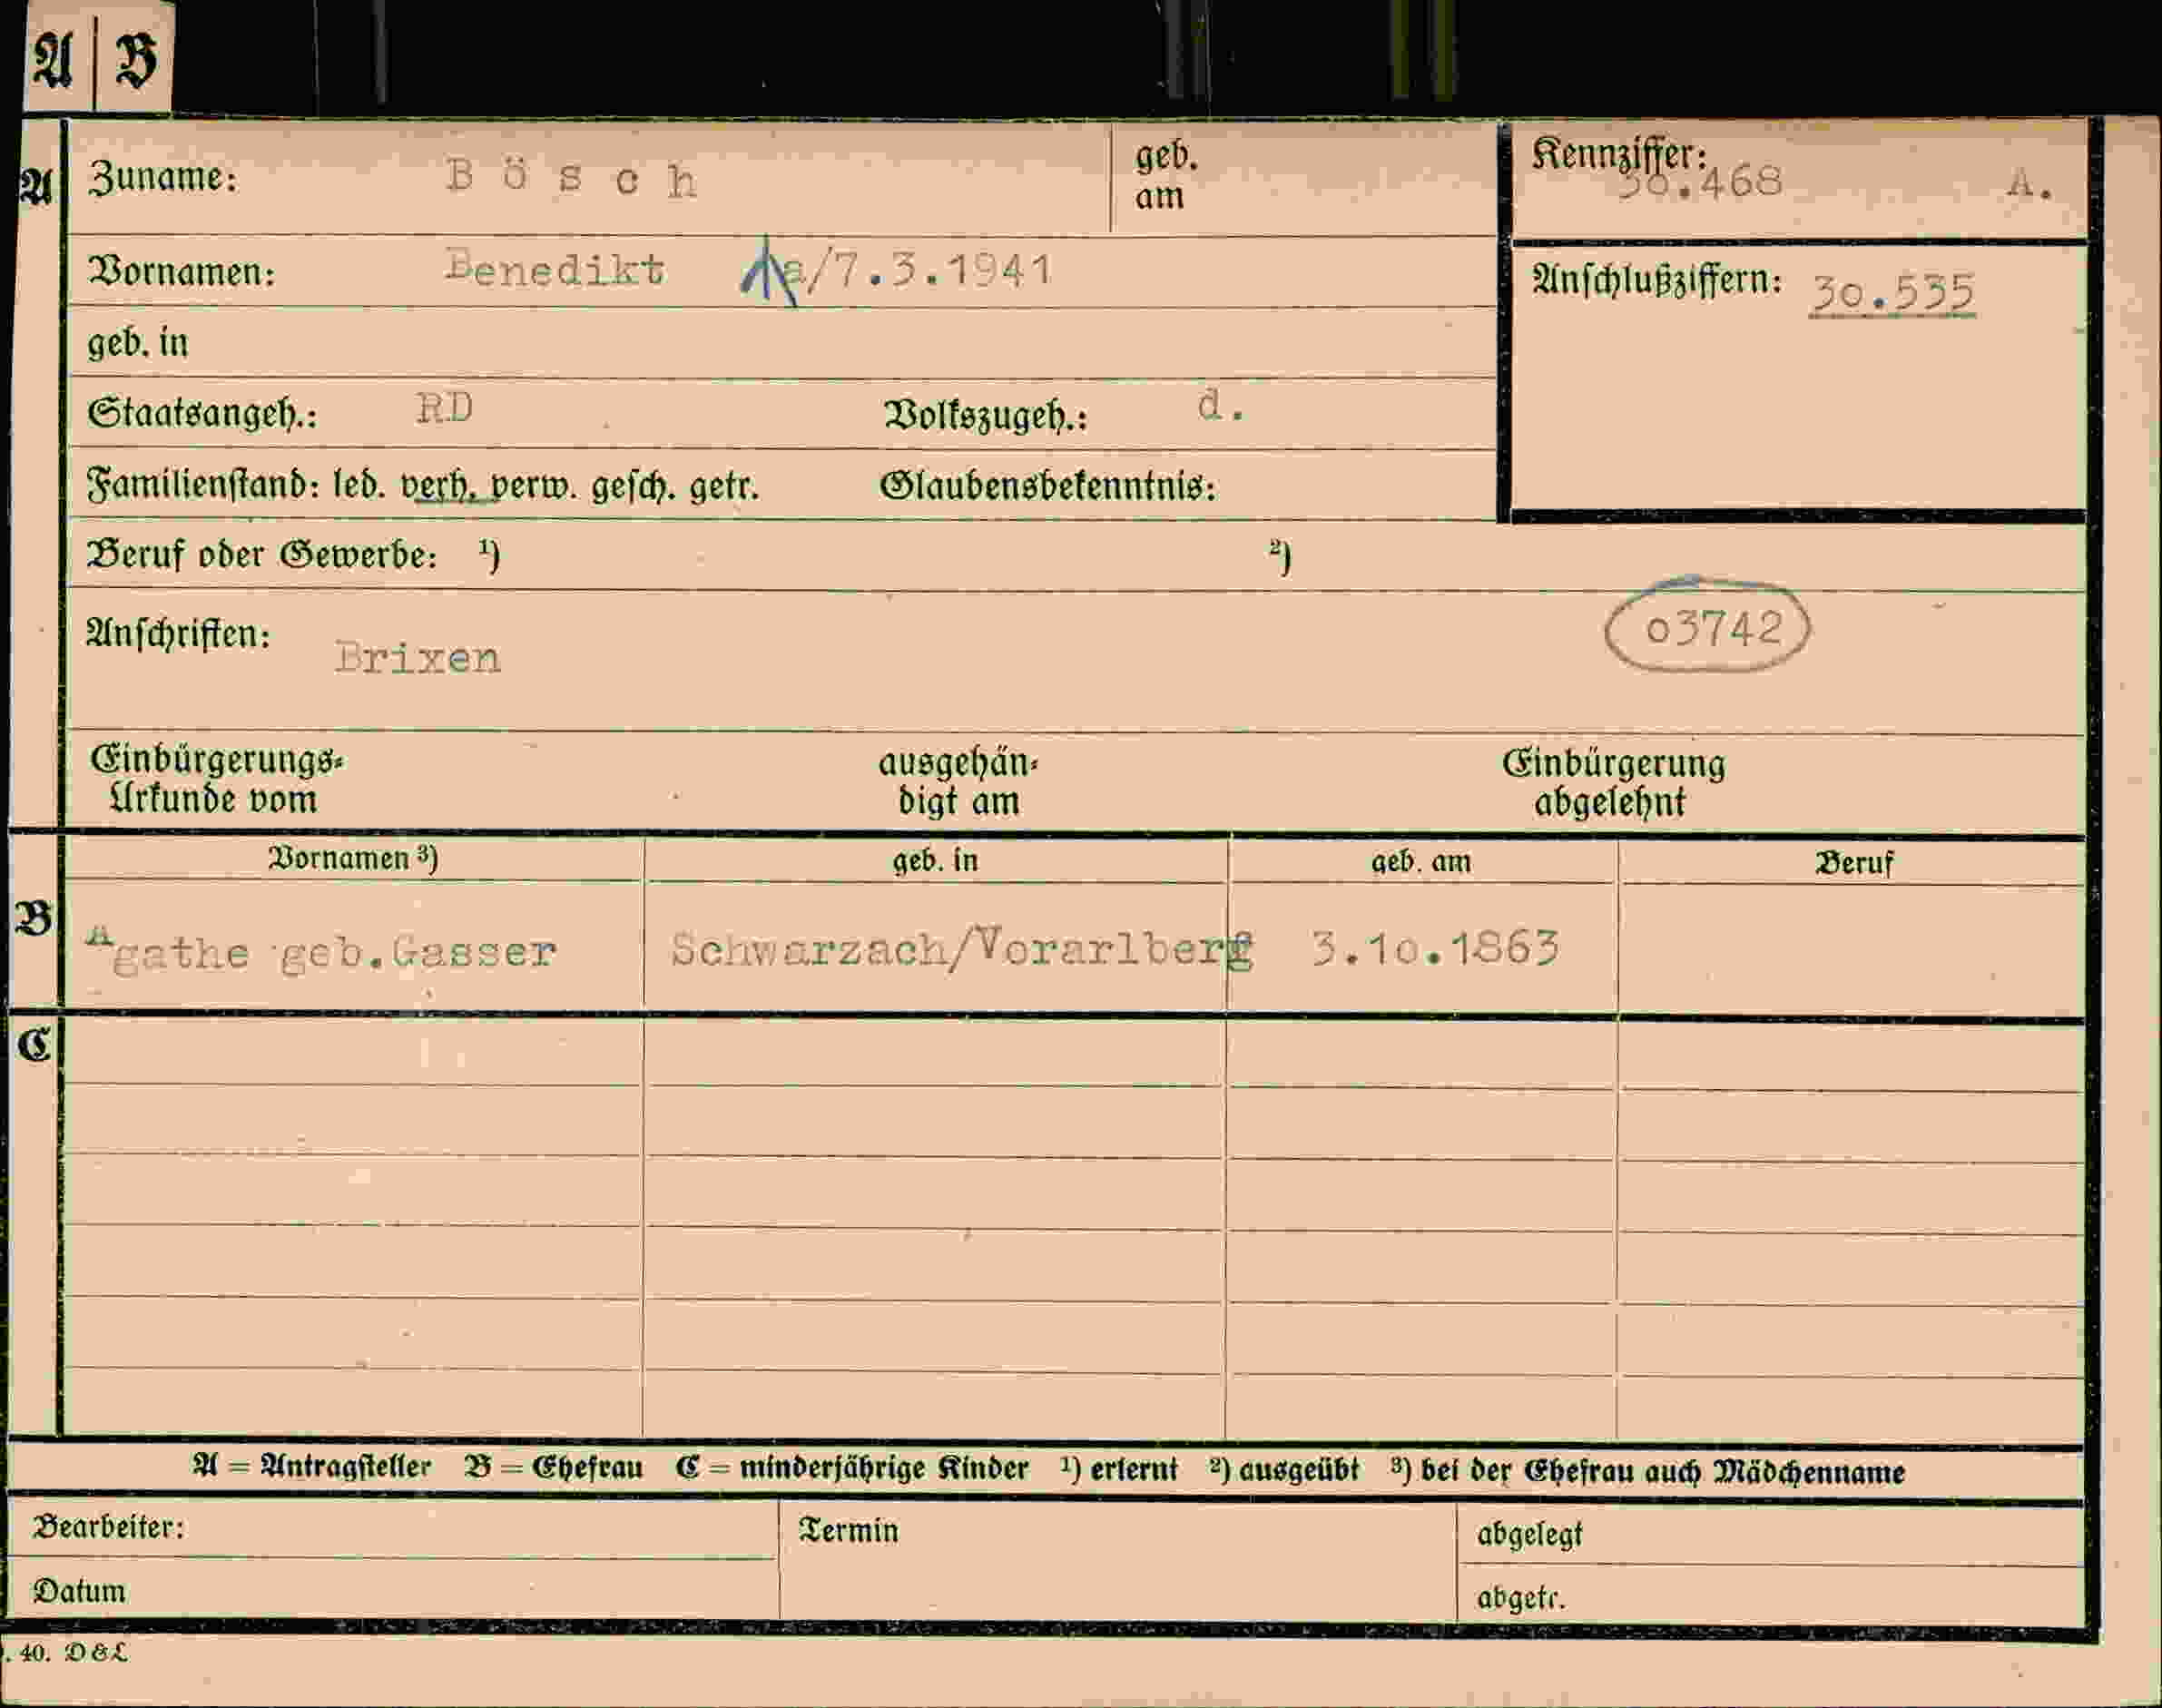 A | B
A
Zuname: B ö s c h
geb. am
Kennziffer: 30.468 A.
Vornamen: Benedikt a/7.3.1941
Anschlußziffern: 30.535
geb. in
Staatsangeh.: RD Volkszugeh.: d.
Familienstand: led. verh. verw. gesch. getr. Glaubensbekenntnis:
Beruf oder Gewerbe: ¹) ²)
Anschriften: Brixen
o3742
Einbürgerungs-
Urkunde vom
ausgehän-
digt am
Einbürgerung
abgelehnt
B
Vornamen ³) geb. in geb. am Beruf
Agathe geb.Gasser Schwarzach/Vorarlberg 3.10.1863
C
A = Antragsteller B = Ehefrau C = minderjährige Kinder ¹) erlernt ²) ausgeübt ³) bei der Ehefrau auch Mädchenname
Bearbeiter: Termin abgelegt
Datum abgetr.
. 40. D & L